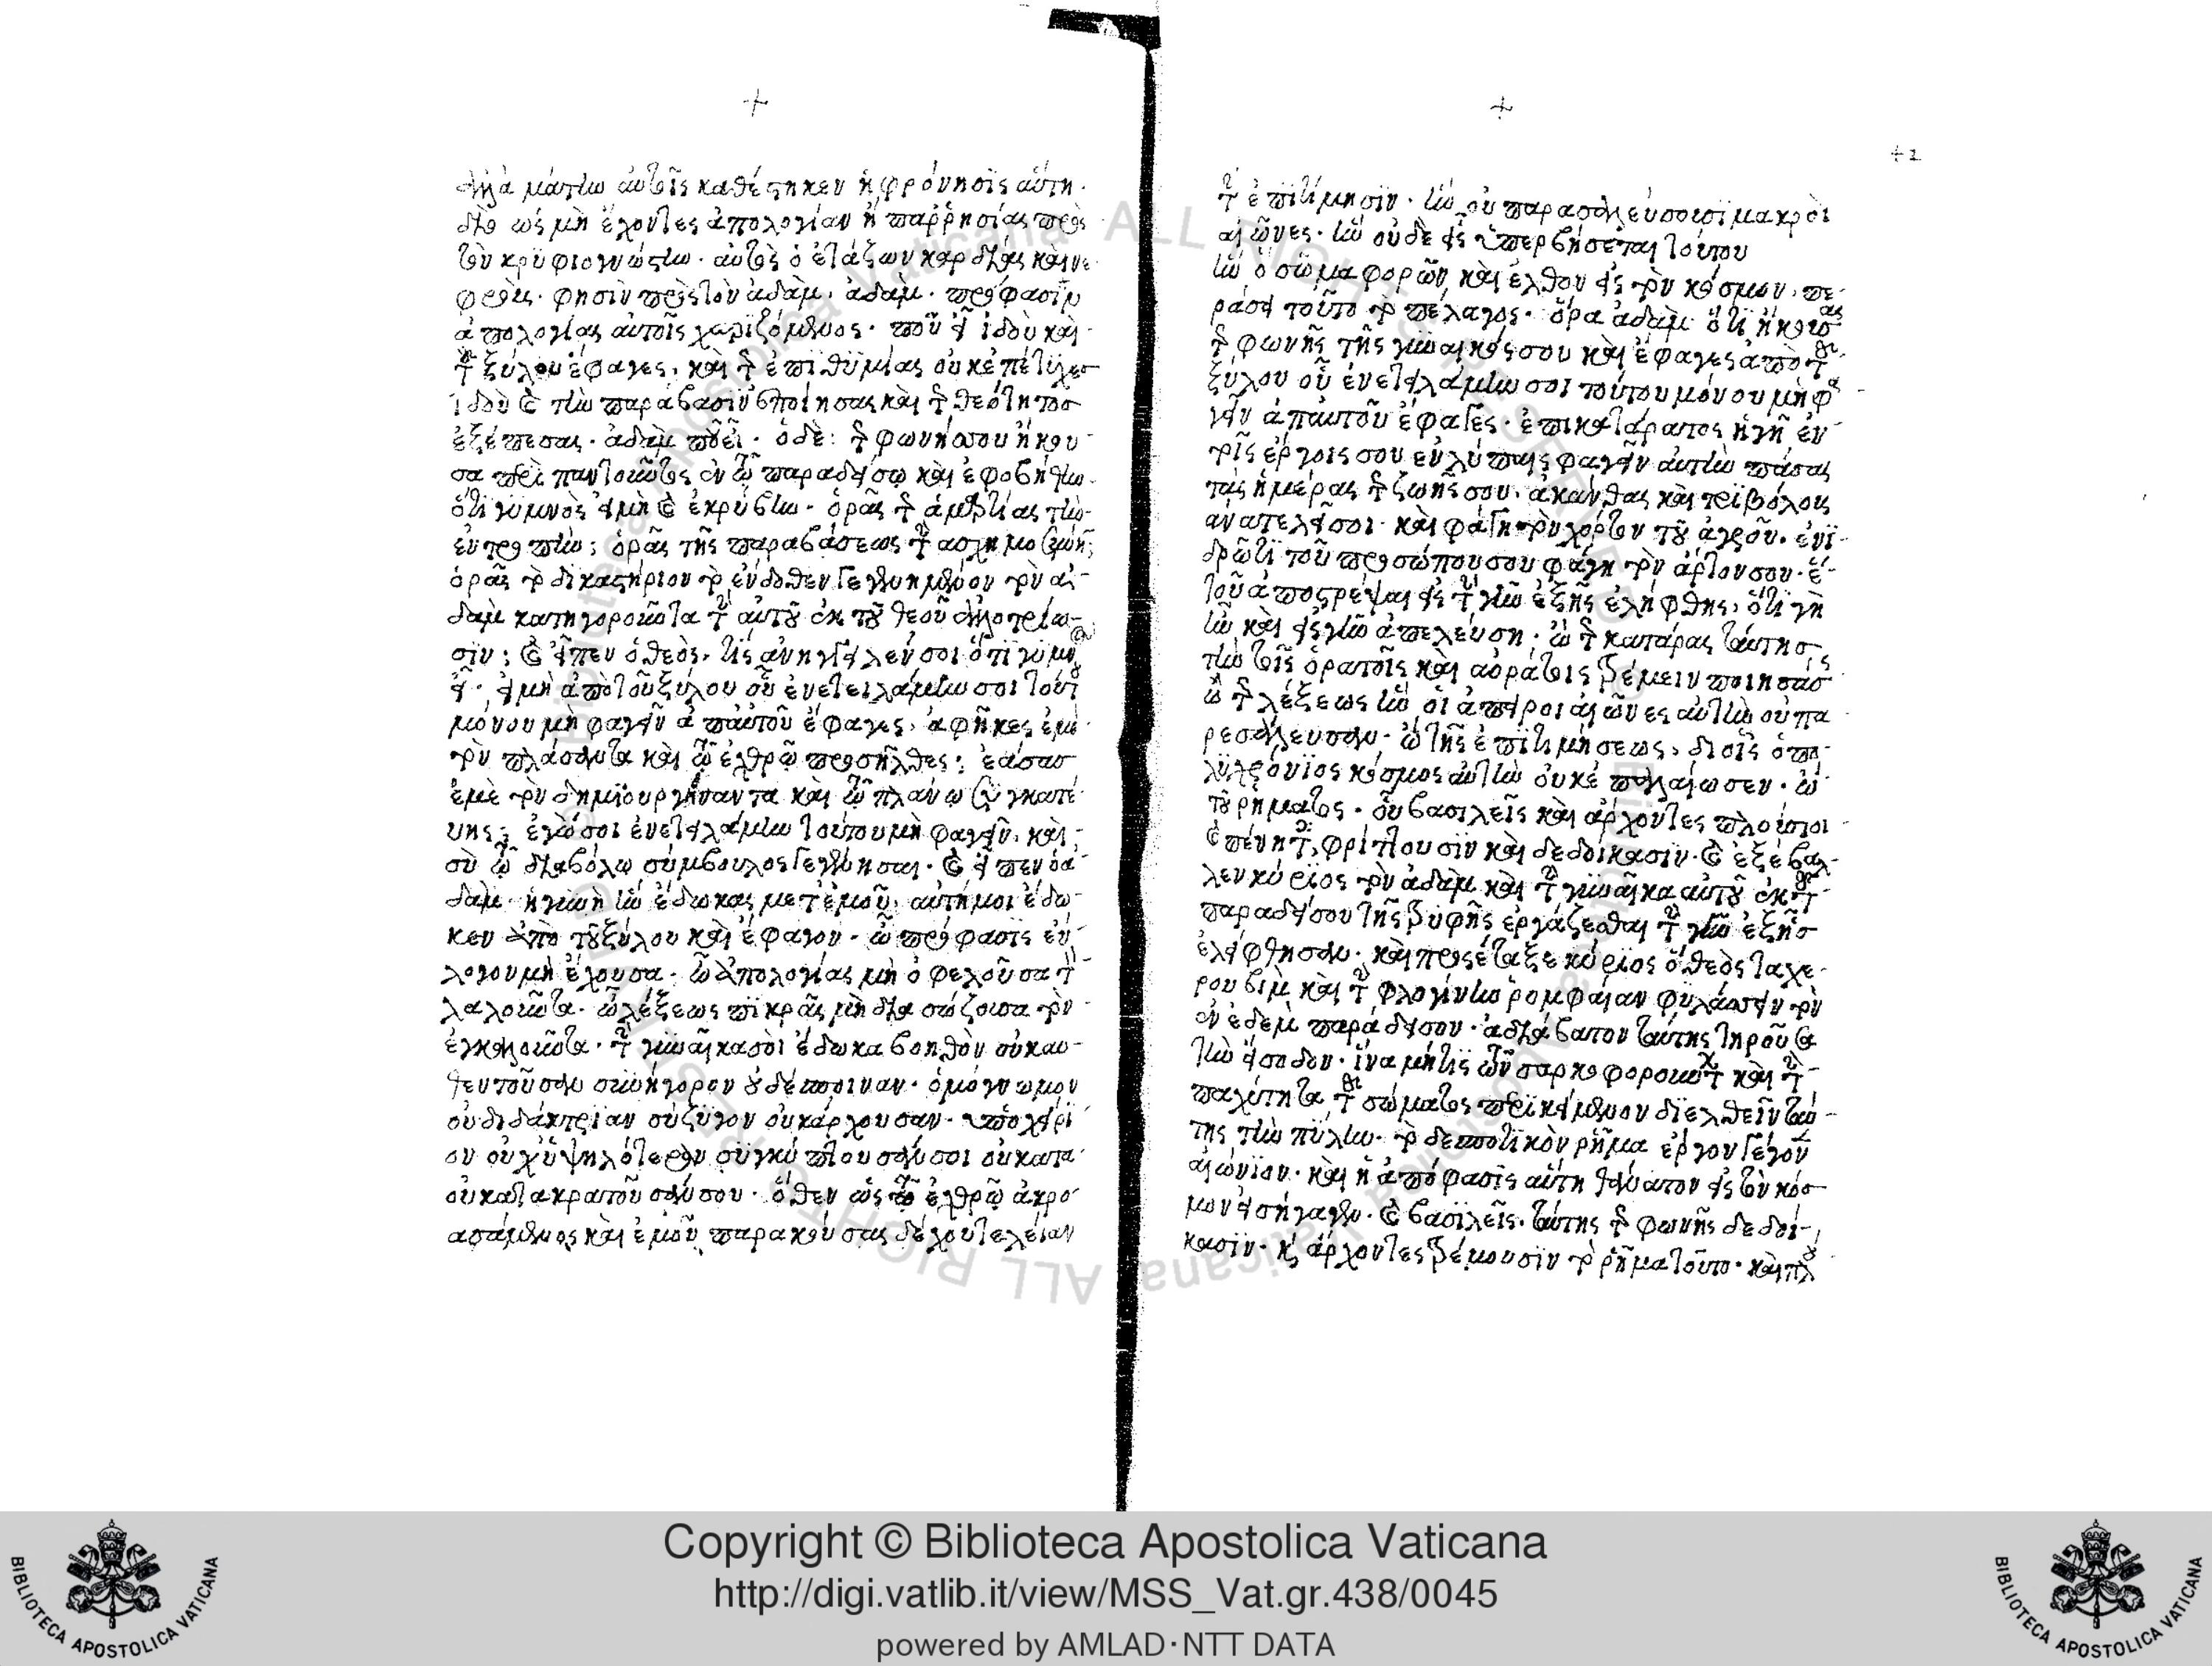 +
ἀλλὰ μάτην αὐτοῖς καθέστηκεν ἡ φρόνησϊς αὕτη·
διὸ ὡς μὴ ἔχοντες ἀπολογίαν ἢ παρρησίας πρὸς
τὸν κρύφιογνώστην· αὐτὸς ὁ ἐτάζων καρδίας καὶ νε
φροὺς· φησὶν πρὸς τὸν ἀδὰμ· ἀδὰμ· πρόφασϊν
ἀπολογίας αὐτοῖς χαρϊζόμενος· ποῦ εἶ ἰδοὺ καὶ
τοῦ ξύλου ἔφαγες, καὶ τῆς ἐπιθϋμίας οὐκ ἐπέτϋχες
ἰδοὺ καὶ τὴν παράβασϊν ἐποίησας καὶ τῆς θεότητος
ἐξέπεσας· ἀδὰμ ποῦ εἶ· ὁ δὲ: τῆς φωνῆς σου ἤκου
σα περιπατοῦντος ἐν τῷ παραδείσῳ καὶ ἐφοβήθην
ὅτι γυμνός εἰμὴ καὶ ἐκρύβην· ὁρᾶς τῆς ἁμαρτίας τὴν
ἐντροπὴν; ὁρᾶς τῆς παραβάσεως τὴν ασχημοσύνην;
ὁρᾶς τὸ δικαστήριον τὸ ἔνδοθεν γεγενημένον τὸν ἀ
δὰμ κατηγοροῦντα τὴν αὐτοῦ ἐκ τοῦ θεοῦ ἀλλοτρίω
σϊν; καὶ εἶπεν ὁ θεὸς· τίς ἀνηγγειλέν σοι ὅτι γυμνὸς
εἶ· εἰμὴ ἀπὸ τοῦ ξύλου οὗ ἐνετειλάμην σοι τούτου
μόνου μὴ φαγεῖν ἀπ' αὐτοῦ ἔφαγες, ἀφῆκες ἐμὲ
τὸν πλάσαντα καὶ τῷ ἐχθρῷ προσῆλθες; ἐάσας
ἐμὲ τὸν δημϊουργήσαντα καὶ τῷ πλάνῳ συγκατέ
νης; ἐγὼ σοι ἐνετειλάμην τούτου μὴ φαγεῖν, καὶ
σὺ τῷ διαβόλω σύμβουλος γεγένησαι· καὶ εἶπεν ὁ ἀ
δὰμ· ἡ γυνὴ ἣν ἔδωκας μετ' ἐμοῦ, αὐτή μοι ἔδω
κεν ἀπὸ τοῦ ξύλου καὶ ἔφαγον· ὢ πρόφασϊς εὔ
λογου μὴ ἔχουσα· ὢ ἀπολογίας μὴ ὀφελοῦσα τὸν
λαλοῦντα· ὢ λέξεως πϊκρᾶς μὴ διασώζουσα τὸν
ἐγκαλοῦντα· τὴν γυναῖκα σοὶ ἔδωκα βοηθὸν οὐκ αυ
θεντοῦσαν συνήγορον οὐ δέσποιναν· ὁμόγνωμον
οὐ διδάκτρϊαν σύζϋγον οὐκ άρχουσαν· ὑποχείρϊ
ον οὐχ ὑψηλότερον συγκύπτουσάν σοι οὐ κατα
οὐ κατακρατοῦσάν σου· ὅθεν ὡς τῷ ἐχθρῷ ἀκρο
ασάμενος καὶ ἐμοῦ παρακούσας δέχου τελείαν
+
42
τὴν ἐπϊτίμησϊν· ἣν οὐ παρασαλεύσουσϊ μακρὸι
αἰῶνες· ἣν οὐδεὶς ὑπερβήσεται τούτου
ἣν ὁ σῶμα φορῶν, καὶ ἐλθὸν εἰς τὸν κόσμον, πε
ράσει τοῦτο τὸ πέλαγος· ὅρα ἀδὰμ ὅτι ἤκουσας
τῆς φωνῆς τῆς γυναικός σου καὶ ἔφαγες ἀπὸ τοῦ
ξύλου οὗ ἐνετειλάμην σοι τούτου μόνου μὴ φα
γεῖν ἀπ' αὐτοῦ ἔφαγες· ἐπικατάρατος ἡ γῆ ἐν
τοῖς ἔργοις σου ἐν λύπαις φαγεῖν αὐτὴν πάσας
τὰς ἡμέρας τῆς ζωῆς σου· ἀκάνθας καὶ τρϊβόλους
ἀνατελεῖ σοι· καὶ φάγη τὸν χόρτον τοῦ ἀγροῦ· ἐν ϊ
δρῶτϊ τοῦ προσώπου σου φάγη τὸν ἄρτον σου· ἕ
τοῦ ἀποστρέψαι εἰς τὴν γῆν ἐξ ἧς ἐλήφθης, ὅτι γῆ
ἦν καὶ εἰς γῆν ἀπελεύση; ὢ τῆς κατάρας ταύτης
τὴν τοῖς ὁρατοῖς καὶ αοράτοις τρέμειν ποιησάσης
ὢ τῆς λέξεως ἣν οἱ ἄπειροι αἰῶνες αὐτὴν οὐ πα
ρεσάλευσαν· ὢ τῆς ἐπϊτιμήσεως, διοῖς ὁ πο
λϋχρόνϊος κόσμος αὐτὴν οὐκ ἐπαλαίωσεν· ὢ
τοῦ ρήματος· ὃν βασιλεῖς καὶ ἄρχοντες πλούσιοι
καὶ πένητες, φρίττουσϊν καὶ δεδοίκασιν· καὶ ἐξέβαλ
λεν κύρϊος τὸν ἀδὰμ καὶ τὴν γυναῖκα αὐτοῦ ἐκ τοῦ
παραδείσου τῆς τρυφῆς ἐργάζεσθαι τὴν γῆν ἐξ ἧς
ἐλείφθησαν· καὶ προσέταξε κύρϊος ὁ θεὸς τα χε
ρουβὶμ καὶ τὴν φλογίνην ῥομφαίαν φϋλάττειν τὸν
ἐν ἐδὲμ παράδεισον· ἀδιάβατον ταύτης τηροῦντα
τὴν εἴσοδον· ἵνα μήτις τῶν σαρκοφορούντων καὶ τὴν
παχύτητα τοῦ σώματος περϊκείμενον δϊελθεῖν ταύ
της τὴν πύλην· τὸ δεσποτϊκὸν ρῆμα ἔργον γέγονεν
αἰώνϊον· καὶ ἡ ἀπόφασϊς αὕτη θάνατον εἰς τὸν κόσ
μον εἰσήγαγεν· καὶ βασϊλεῖς· ταύτης τῆς φωνῆς δεδοί
κασϊν· κ' ἄρχοντες τρέμουσϊν τὸ ρῆμα τοῦτο· καὶ πλού
Copyright © Biblioteca Apostolica Vaticana
http://digi.vatlib.it/view/MSS_Vat.gr.438/0045
powered by AMLAD·NTT DATA
BIBLIOTECA APOSTOLICA VATICANA
BIBLIOTECA APOSTOLICA VATICANA